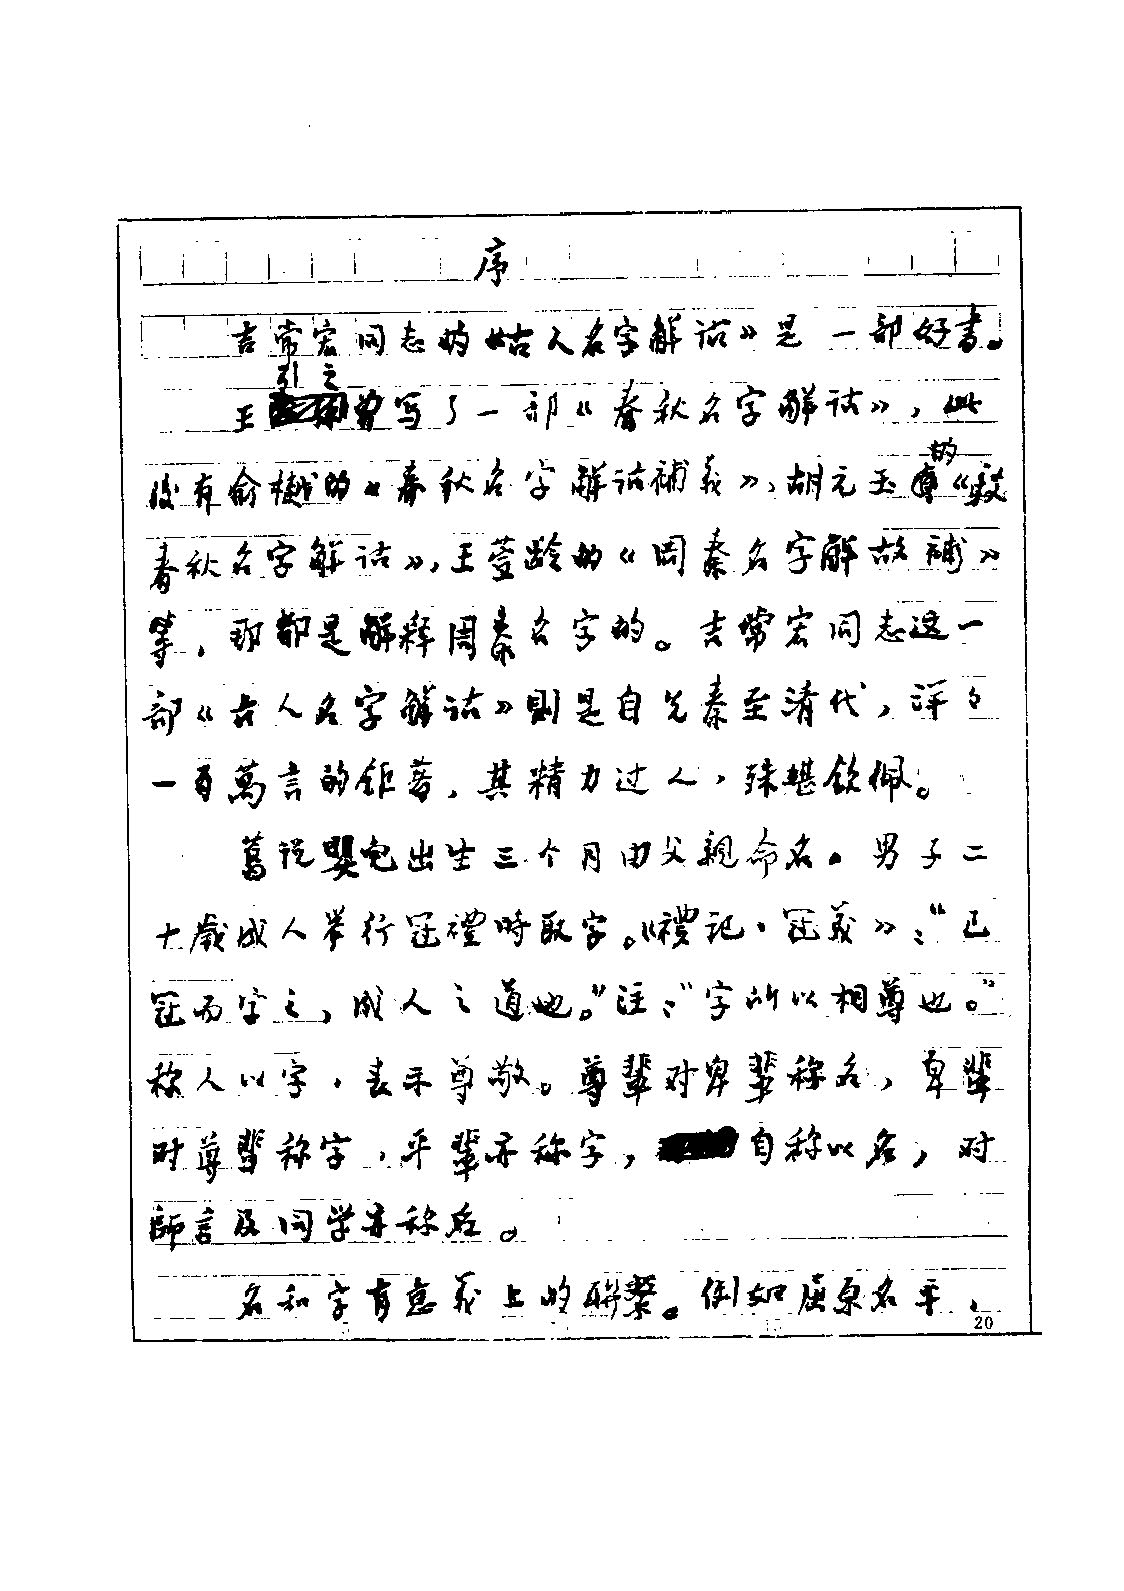 序
吉常宏同志的《古人名字解詁》是一部好書。
王引之曾写了一部《春秋名字解詁》，此
後有俞樾的《春秋名字解詁補義》、胡元玉的《駁
春秋名字解詁》，王萱龄的《周秦名字解故補》
等，那都是解释周秦名字的。吉常宏同志这一
部《古人名字解詁》則是自先秦至清代，洋々
一百萬言的鉅著，其精力过人，殊堪欽佩。
舊説嬰兒出生三个月由父親命名。男子二
十歲成人举行冠禮時取字。《禮記·冠義》：“已
冠而字之，成人之道也。”注：“字所以相尊也。”
称人以字，表示尊敬。尊輩对卑輩称名，卑輩
对尊輩称字，平輩亦称字，自称以名，对
師言及同学亦称名。
名和字有意義上的聯繫。例如屈原名平，
15
20